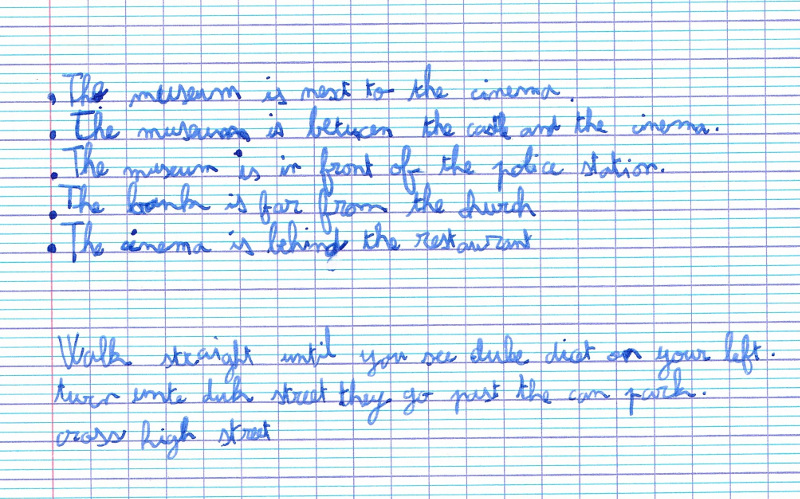 • The museum is next to the cinema.
• The museum is between the castle and the cinema.
• The museum is in front of the police station.
• The bank is far from the church
• The cinema is behind the restaurant
Walk straight until you see duke dict on your left.
turn unte duk street they go past the can park.
cross high street